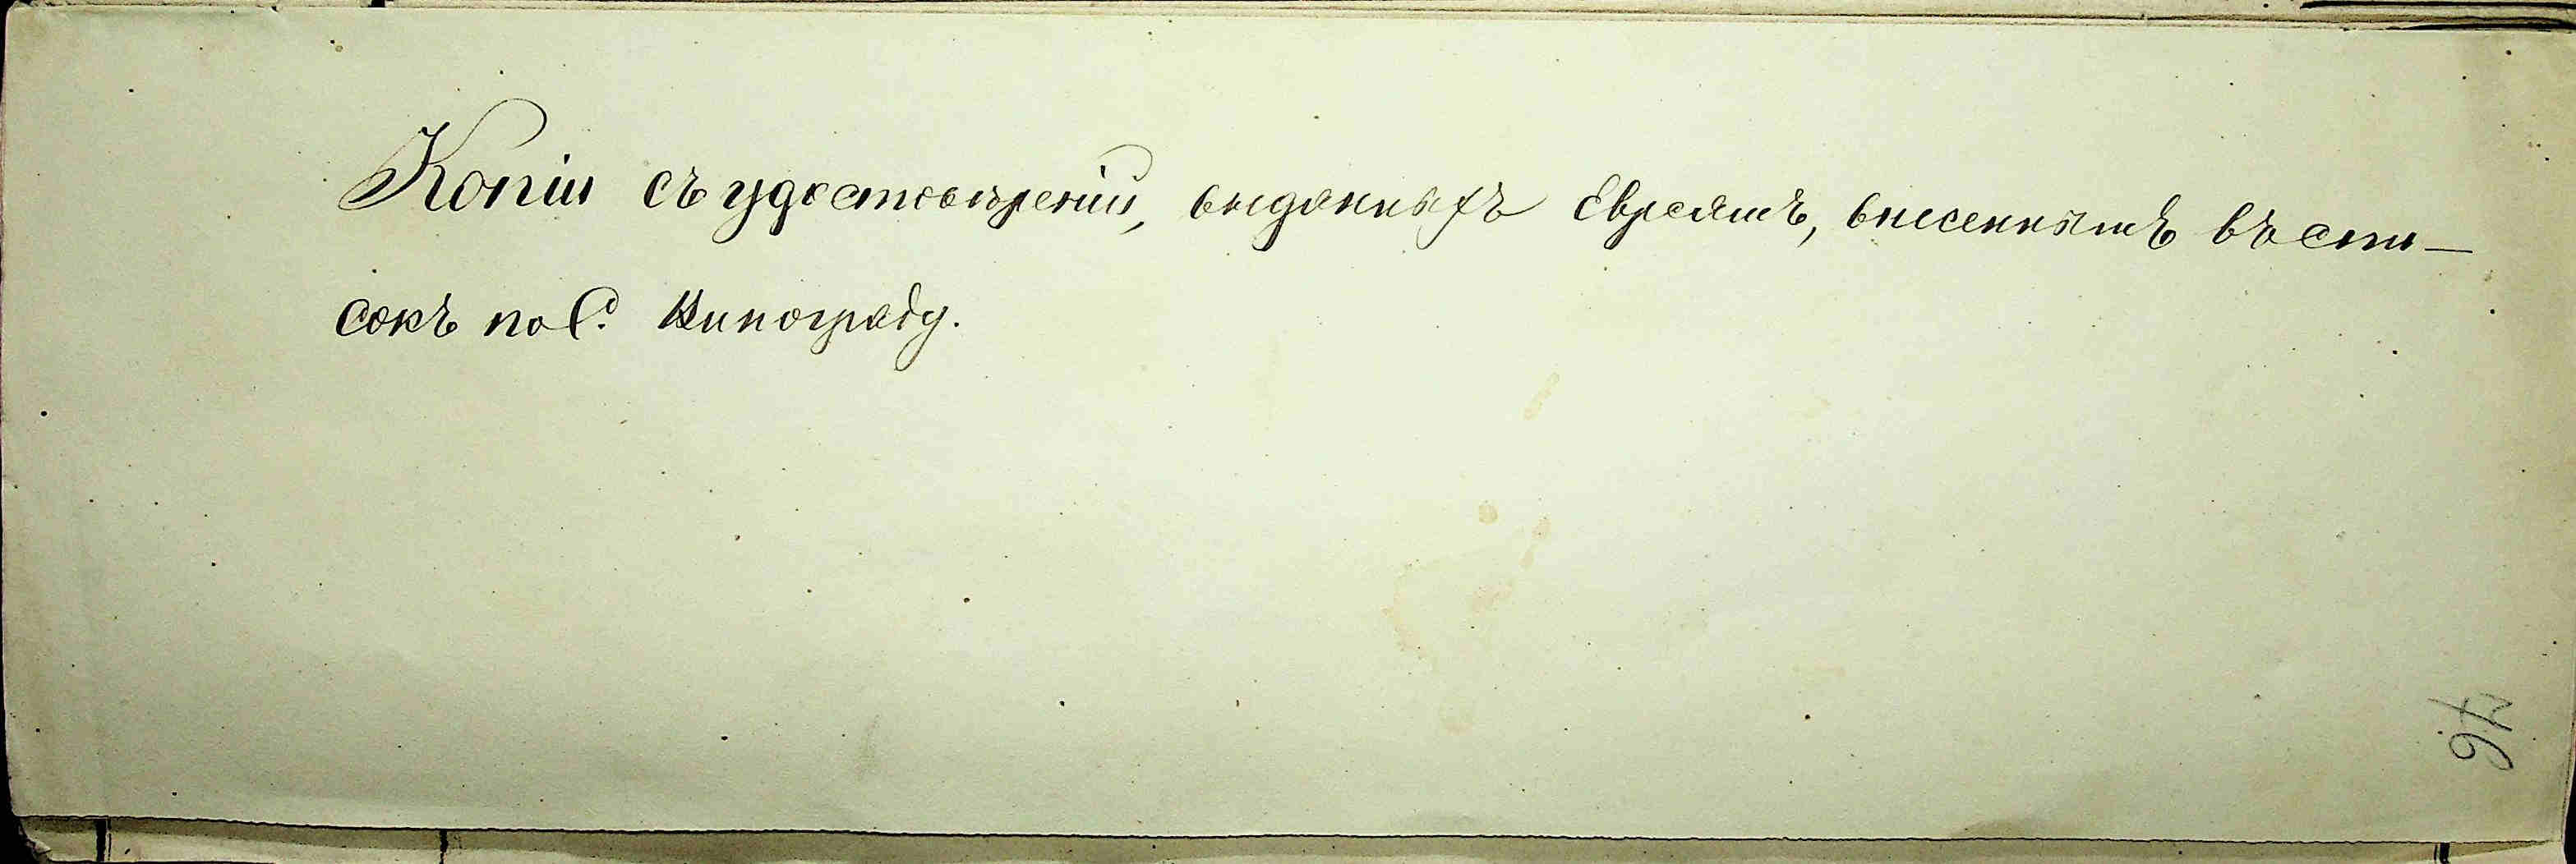 Копіи съ удостовѣреній, выданныхъ Евреямъ, внесеннымъ въ спи-
сокъ по С. Винограду.
76